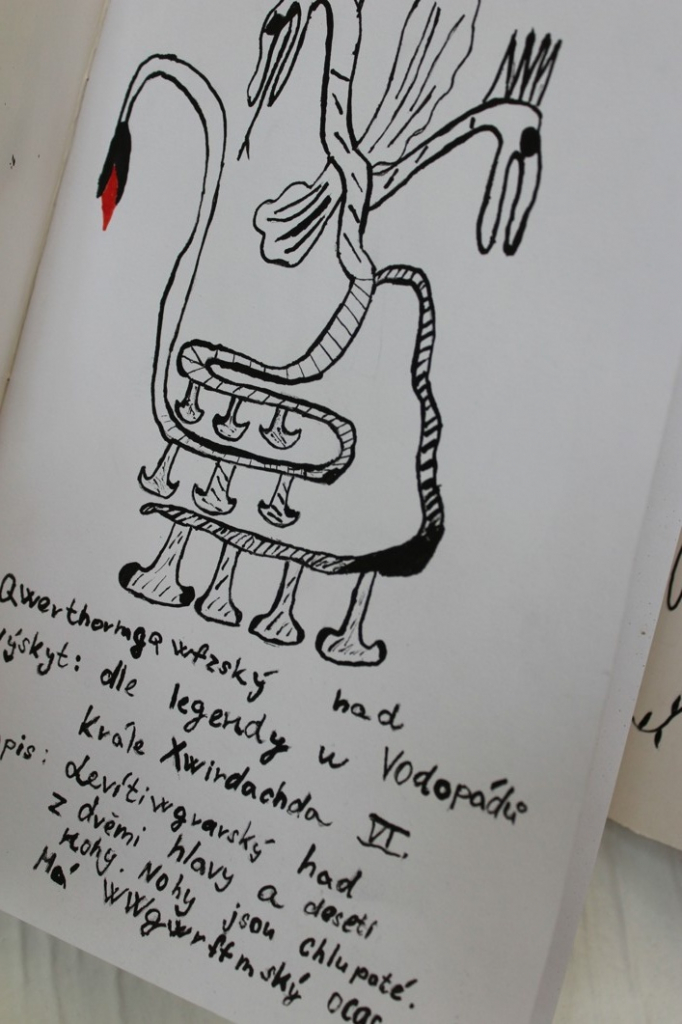 Qwerthormgqwfzský had
Výskyt: dle legendy u Vodopádů
Krále Xwirdachda VI.
opis: Levítiwgrarský had
z dvěmi hlavy a deseti
nohy. Nohy jsou chlupaté.
Má wwgwrffmský ocas